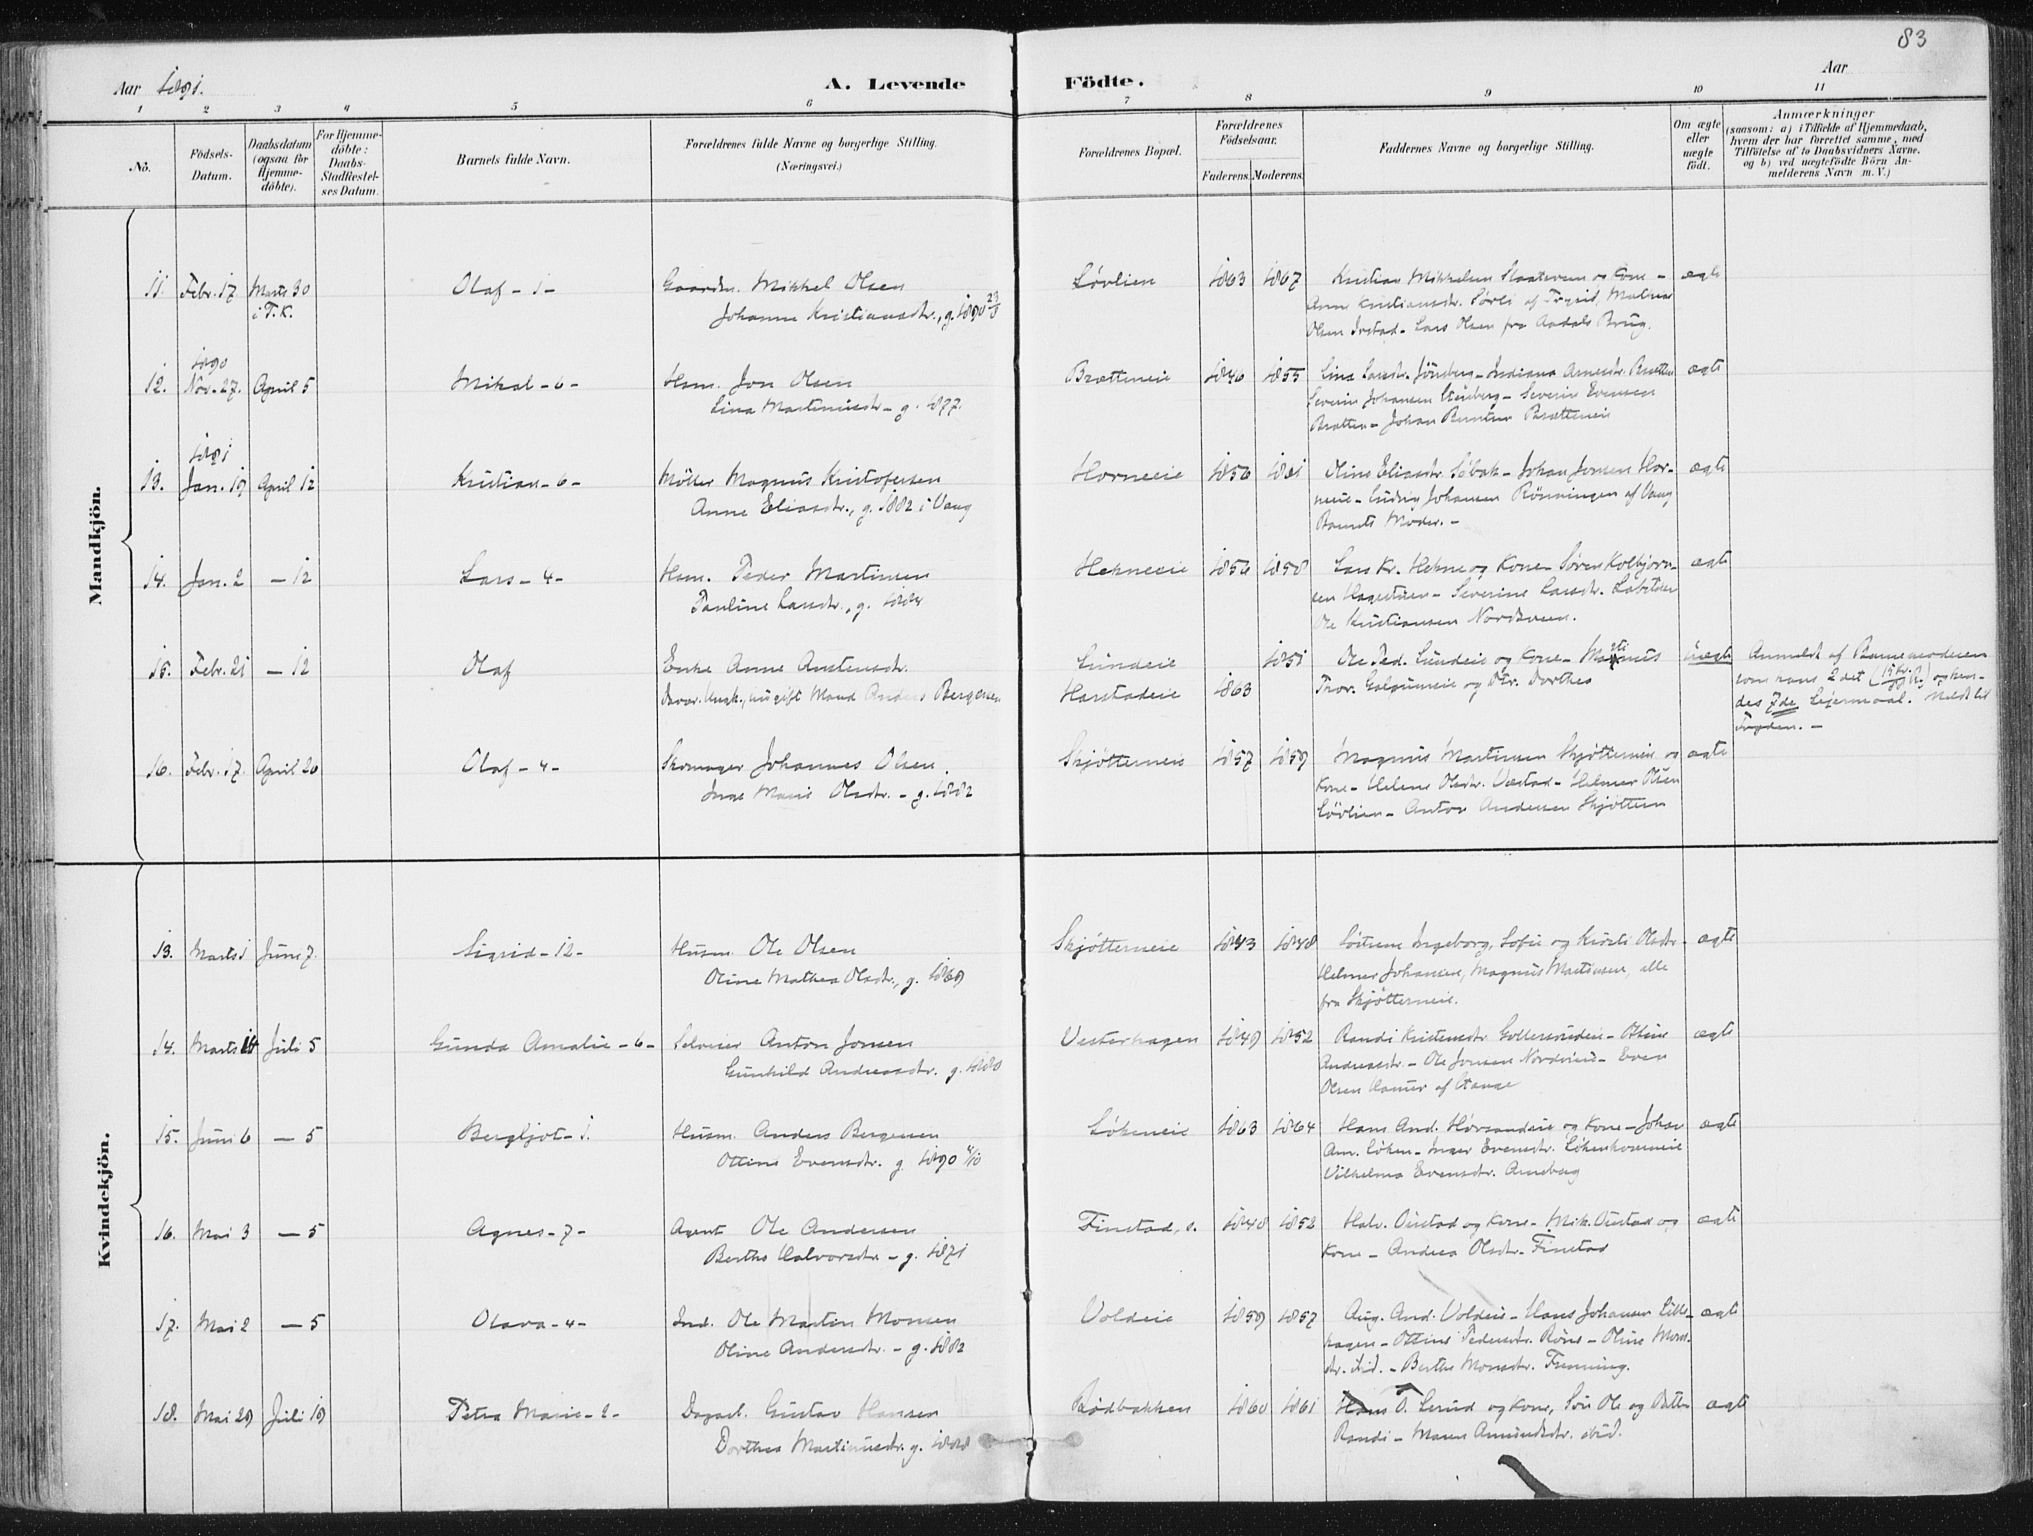 83
Aar 1891.
A. Levende Födte.
Aar
1 2 3 4 5 6 7 8 9 10 11
No.
Födsels-Datum.
Daabsdatum (ogsaa for Hjemme-döbte).
For Hjemme-döbte: Daabs-Stadfæstel-ses Datum.
Barnets fulde Navn.
Forældrenes fulde Navne og borgerlige Stilling. (Næringsvei.)
Forældrenes Bopæl.
Forældrenes Födselsaar.
Faderens. Moderens.
Faddernes Navne og borgerlige Stilling.
Om ægte eller uægte födt.
Anmærkninger
(saasom: a) i Tilfælde af Hjemmedaab,
hvem der har forrettet samme, med
Tilföielse af to Daabsvidners Navne,
og b) ved uægtefödte Börn An-
melderens Navn m. V.)
Mandkjön.
11. Febr. 17. Marts 30 i T.K. Olaf - 1 -
Gaardm. Mikkel Olsen
Johanne Kristiansdtr., g. 1890 23/8
Løvlien 1863 1867
Kristian Mikkelsen og Kone -
Anne Kristiansdtr. Sørli af Trysil,
Olsen - Lars Olsen fra Aadals Brug.
ægte
12. 1890 Nov. 27. April 5 Mikal - 6 -
Husm. Jon Olsen
Lina Martinusdtr. - g. 1877.
Brætteneie 1846 1855
Lina Larsdtr. - Indiana Arnesdtr. Brætten
Severin Johansen - Severin Evensen
Brætten - Johan Brætteneie
ægte
13. 1891 Jan. 19 April 12 Kristian - 6 -
Møller Magnus Kristofersen
Anne Eliasdtr., g. 1882 i Vang
Horneeie 1856 1861
Oline Eliasdtr. Søbak - Johan Jonsen Hor-
neeie - Ludvig Johansen Rønningen af Vang
Barnets Moder. -
ægte
14. Jan. 2 - 12 Lars - 4 -
Husm. Peder Martinsen
Pauline Larsdtr., g. 1884
Hekneeie 1856 1858
Lars Kr. Hekne og Kone - Søren Kolbjørn-
sen Hagestuen - Severine Larsdtr.
Ole Kristiansen Nordsveen.
ægte
15. Febr. 21 - 12 Olaf
Enke Anne Arntensdtr.
Ungk., nu gift Mand Anders Bergersen
Lundeie 1851
Harstadeie 1863
Ole Ped. Lundeie og Kone - Martinus
Thor. og Dtr. Dorthea
uægte
Anmeldt af Barnemoderen
som hans 2det og hen-
des 7de Leiermaal. Meldt til
Fogden. -
16. Febr. 17. April 26 Olaf - 4 -
Skomager Johannes Olsen
Inge Marie Olsdtr. - g. 1882
Skjøtterneie 1857 1859
Magnus Martinsen Skjøtterneie og
Kone - Helene Olsdtr. - Helmer Olsen
Løvlien - Anton Andersen Skjøtten
ægte
Kvindekjön.
13. Marts 1 Juni 7. Sigrid - 12 -
Husm. Ole Olsen
Oline Mathea Olsdtr., g. 1869
Skjøtterneie 1843 1848
Søstrene Ingeborg, Sofie og Kirsti Olsdtr.
Helmer Johansen, Magnus Martinsen, alle
fra Skjøtterneie.
ægte
14. Marts 14 Juli 5 Gunda Amalie - 6 -
Selveier Anton Jonsen
Gunhild Andreasdtr. g. 1880
Vesterhagen 1849 1852
Randi Kristensdtr. - Ottine
Andreasdtr. - Ole Jonsen - Even
Olsen af Stange
ægte
15. Juni 6 - 5 Bergljot - 1.
Husm. Anders Bergersen
Ottine Evensdtr. g. 1890
Løkeneie 1863 1864
Hans And. Hørsandeie og Kone - Johan
Am. Løken - Inger Evensdtr.
Vilhelma Evensdtr. Arneberg
ægte
16. Mai 3 - 5 Agnes - 7 -
Agent Ole Andersen
Berthe Halvorsdtr. - g. 1871
Finstad, s. 1848 1852
Halv. Oustad og Kone - Mik. Oustad og
Kone - Andrea Olsdtr. Finstad
ægte
17. Mai 2 - 5 Olava - 4 -
Ind. Ole Martin Monsen
Oline Andersdtr. - g. 1882
Voldeie 1859 1857
Aug. And. Voldeie - Hans Johansen Lille-
hagen - Ottine Pedersdtr. - Oline Mons-
dtr. ibid. - Berthe Monsdtr.
ægte
18. Mai 29 Juli 19 Petra Marie - 2 -
Dagarb. Gustav Hansen
Dorthea Martinusdtr. g. 1888
Rødbakken 1860 1861
Hans O. og Kone, Søn Ole og Datter
Randi - Maren Amundsdtr. ibid.
ægte